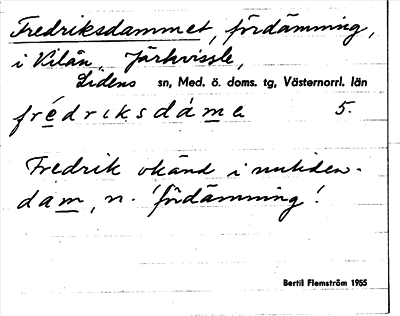 Fredriksdammet, fördämning,
i Kilån, Järkvissle,
Lidens sn, Med. ö. doms. tg, Västernorrl. län
frédriksdàme 5.
Fredrik okänd i nutiden.
dam, n. 'fördämning'.
Bertil Flemström 1965